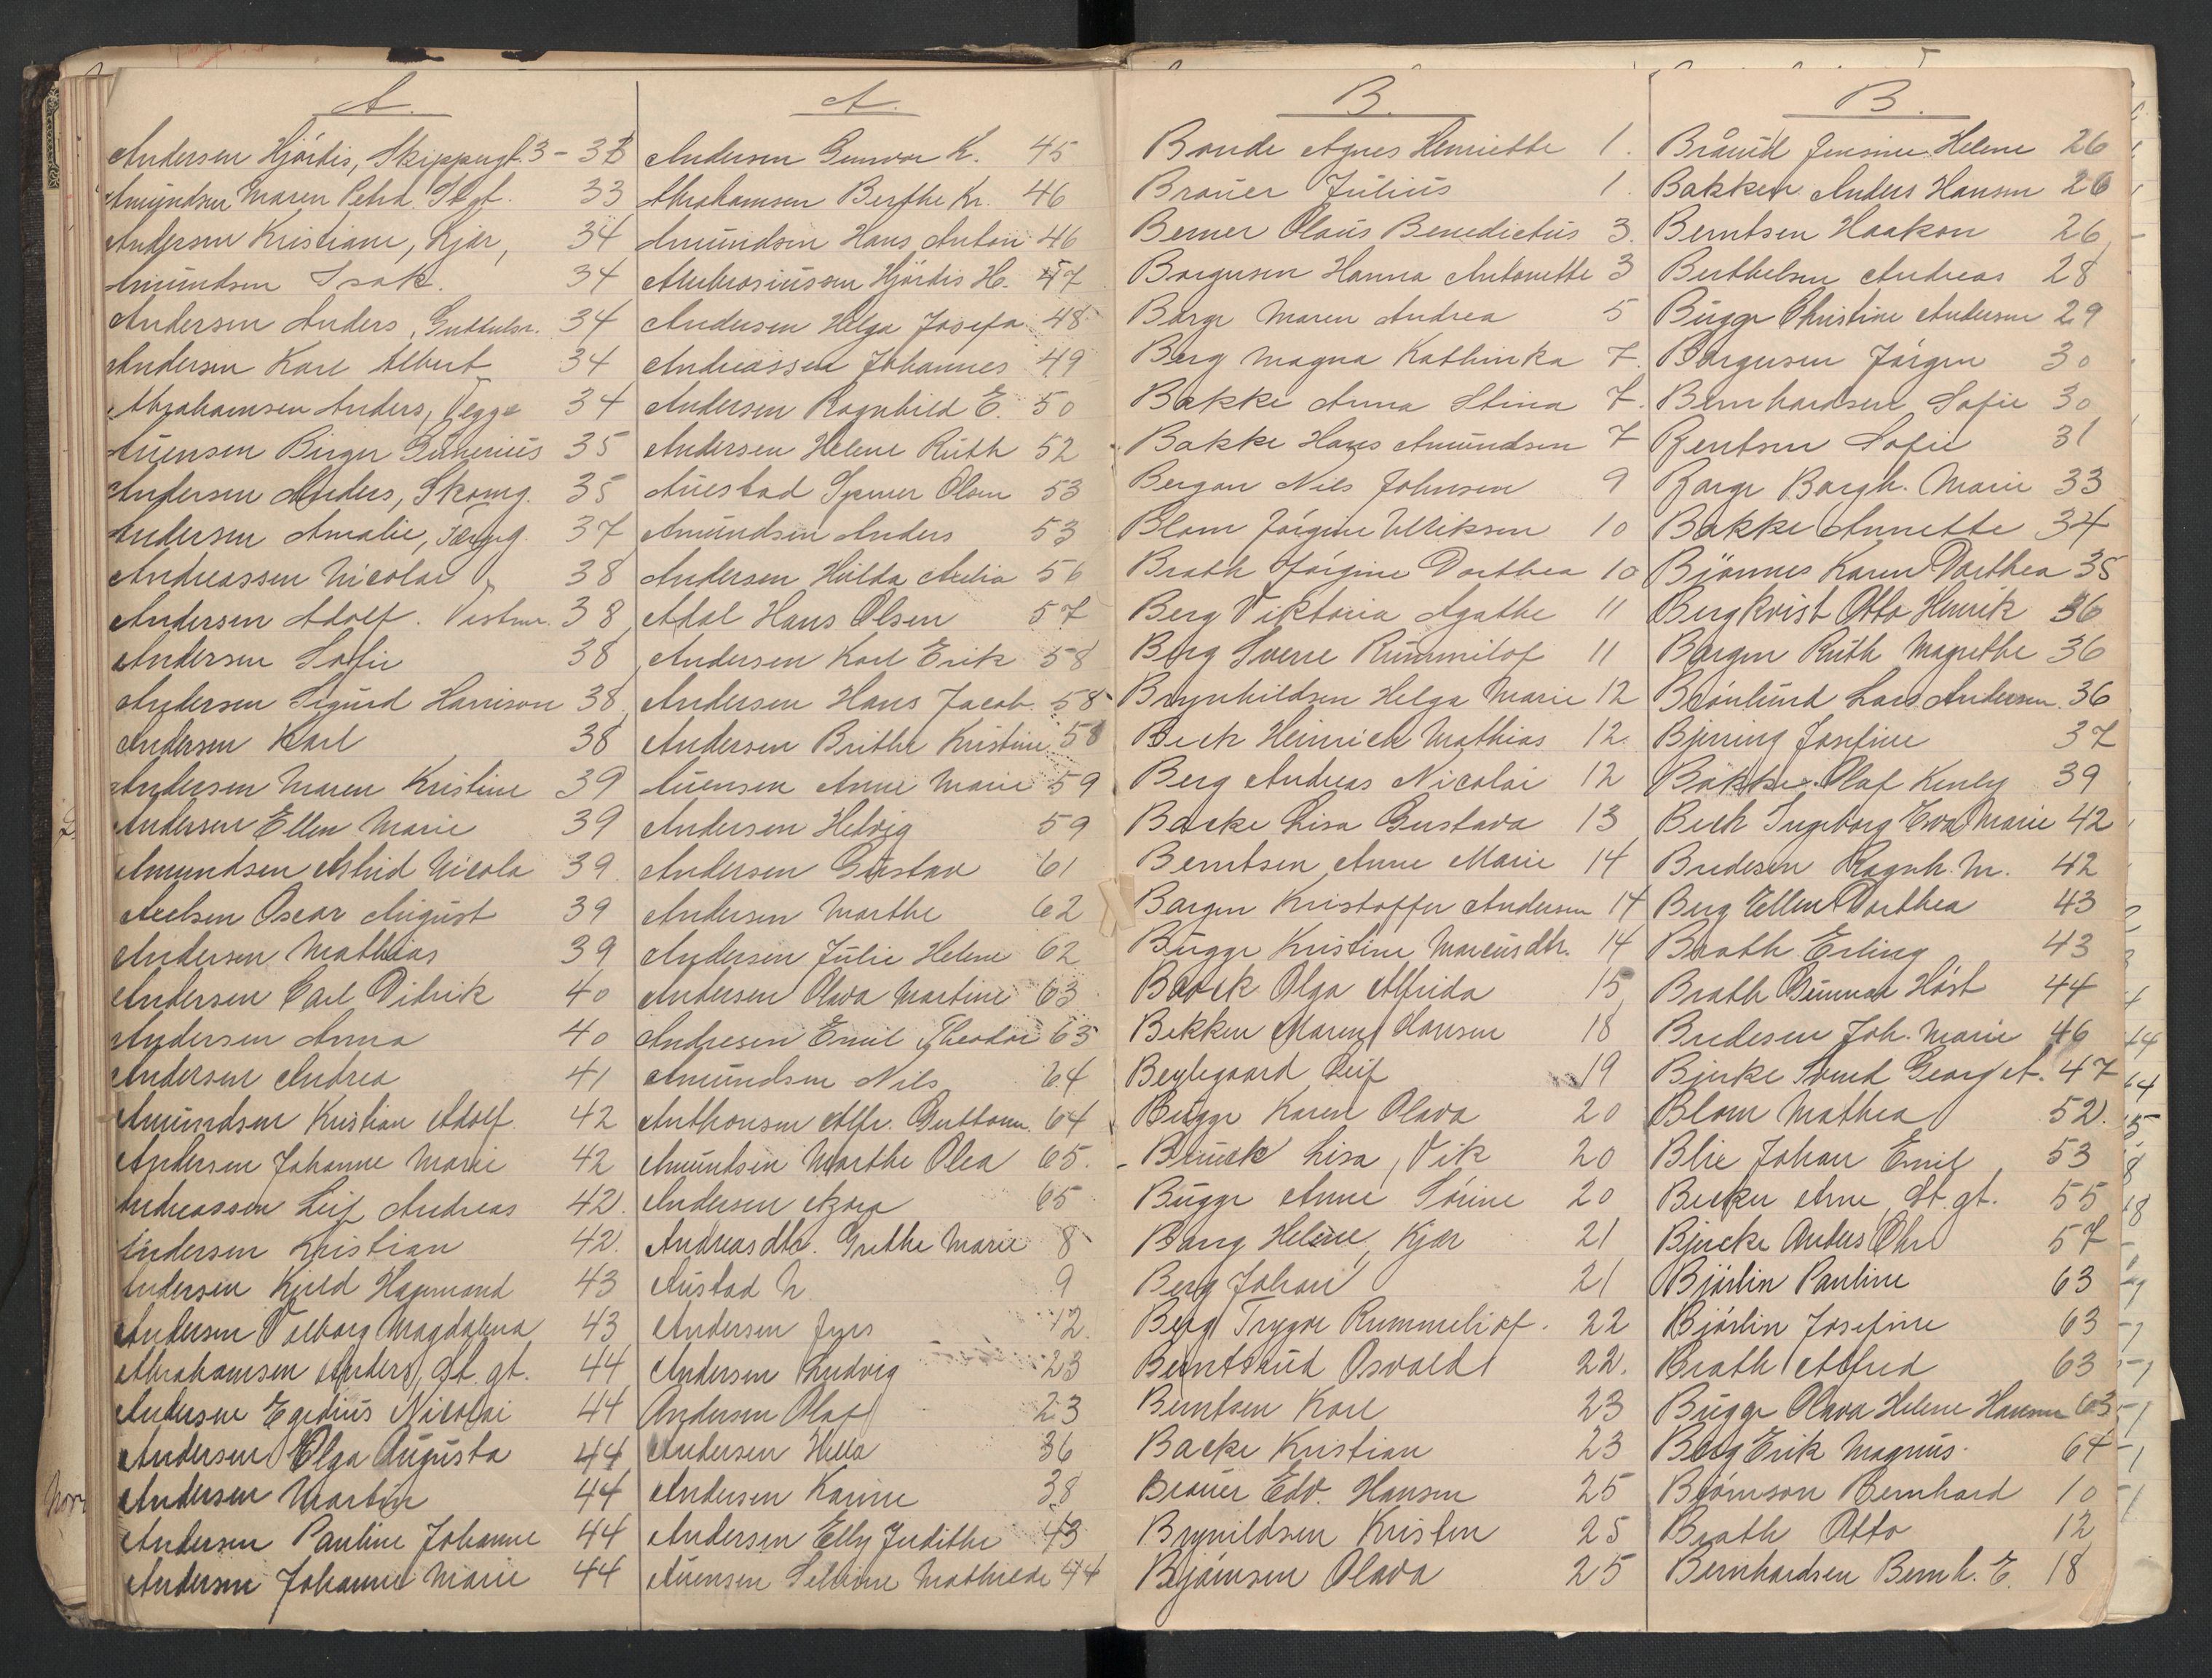 A.
Andersen Hjördis, Skippergt. 3 - 33
Amundsen Maren Petra. St.gt. 33
Andersen Kristiane, Kjær, 34
Amundsen Isak. 34
Andersen Anders, 34
Andersen Karl Albert 34
Abrahamsen Anders, Vegge 34
Auensen Birger Gunerius 35
Andersen Anders, Skomg. 35
Andersen Amalie, 37
Andreassen Nicolai 38
Andersen Adolf. 38
Andersen Sofie 38
Andersen Sigurd Harrison 38
Andersen Karl 38
Andersen Maren Kristine 39
Andersen Ellen Marie 39
Amundsen Astrid Nicola 39
Aulsen Oscar August 39
Andersen Mathias 39
Andersen Carl Didrik 40
Andersen Anna 40
Andersen Andrea 41
Amundsen Kristian Adolf. 42
Andersen Johanne Marie 42
Andreassen Leif Andreas 42.
Andersen Kristian 42.
Andersen Kjeld Hagemand 43
Andersen Valborg Magdalena 43
Abrahamsen Anders, St. gt. 44
Andersen Egidius Nicolai 44
Andersen Olga Augusta 44
Andersen Martin 44
Andersen Pauline Johanne 44
Andersen Johanne Marie 44
A.
Andersen Gunvor K. 45
Abrahamsen Berthe Kr. 46
Amundsen Hans Anton 46
Ambrosiussen Hjördis H. 47
Andersen Helga Josefa 48
Andreassen Johannes 49
Andersen Ragnhild E. 50
Andersen Helene Ruth 52
Auestad Olsen 53
Amundsen Anders 53
Andersen Hulda Aulia 56
Adal Hans Olsen 57
Andersen Karl Erik 58
Andersen Hans Jacob. 58
Andersen Brithe Kristine 58
Auensen Anne Marie 59
Andersen Hedvig 59
Andersen Gustav 61
Andersen Marthe 62
Andersen Julie Helene 62
Andersen Olava Martine 63
Andresen Emil Theodor 63
Amundsen Nils 64
Anthonsen Alfr. Guttorm. 64
Amundsen Marthe Olea 65.
Andersen Aagot 65
Andreasdtr. Grethe Marie 8
Austad N. 9
Andersen Jens 12.
Andersen Ludvig 23
Andersen Olaf 23
Andersen Hella 36
Andersen Karine 38
Andersen Elly Judithe 43
Auensen Selvine Mathilde 44
B.
Bonde Agnes Henriette 1.
Brauer Julius 1.
Berner Olaus Benedictus 3.
Borgersen Hanna Antonette 3
Borge Maren Andrea 5
Berg Magna Kathinka 7.
Bakke Anna Stina 7.
Bakke Hans Amundsen 7
Bergan Nils Johnsen 9
Blom Jörgine Ulriksen 10
Brath Jörgine Dorthea 10
Berg Viktoria Agathe 11
Berg Sverre Rummelof 11
Brynhildsen Helga Marie 12
Beck Heinrich Mathias 12.
Berg Andreas Nicolai 12
Backe Lisa Gustava 13
Berntsen Anne Marie 14
Borgen Kristoffer Andersen 14
Bugge Kristine Marcusdtr. 14
Baack Olga Alfrida 15
Bekken Maren Hansen 18
Beylegaard Leif 19
Bugge Karen Olava 20
Bruuck Lisa, Vik 20
Bugge Anne Sörine 20
Bang Helene, Kjær 21
Berg Johan 21
Berg Trygve Rummeliof. 22
Berntsrud Osvald 22.
Berntsen Karl 23
Backe Kristian 23
Brauer Edv. Hansen 25
Brynildsen Kristen 25
Bjørnsen Olava 25
B.
Bråud Jensine Helene 26
Bakken Anders Hansen 26
Berntsen Haakon 26
Berthelsen Andreas 28
Bugge Christine Andersen 29
Borgersen Jörgen 30
Bernhardsen Sofie 30
Berntsen Sofie 31
Borge Borgh. Marie 33
Bakke Annette 34
Björnnes Karen Dorthea 35
Bergkvist Otto Henrik 36
Borgen Ruth Magrethe 36
Brönlund Lars Andersen. 36
Bjerring Josefine 37
Bakke Olaf Kenly 39
Beck Ingeborg Eva Marie 42
Bredesen Ragnh. M. 42
Berg Ellen Dorthea 43
Brath Erling 43
Brath Gunnar Höst 44
Bredesen Joh. Marie 46
Bjerke Svend Georg A. 47
Blom Mathea 52.
Blie Johan Emil 53
Becker Arne, St. gt. 55
Bjercke Anders Chr 57
Björlin Pauline 63
Björlin Josefine 63
Brath Alfred 63
Bugge Olava Helene Hansen 63
Berg Erik Magnus. 64
Bjørnson Bernhard 10
Brath Otto 12
Bernhardsen Bernh. E. 18